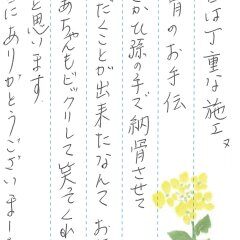 は丁重な施工
骨のお手伝
かひ孫の手で納骨させて
だくことが出来たなんて お
あちゃんもビックリして笑そくれ
と思います。
にありがとうございました